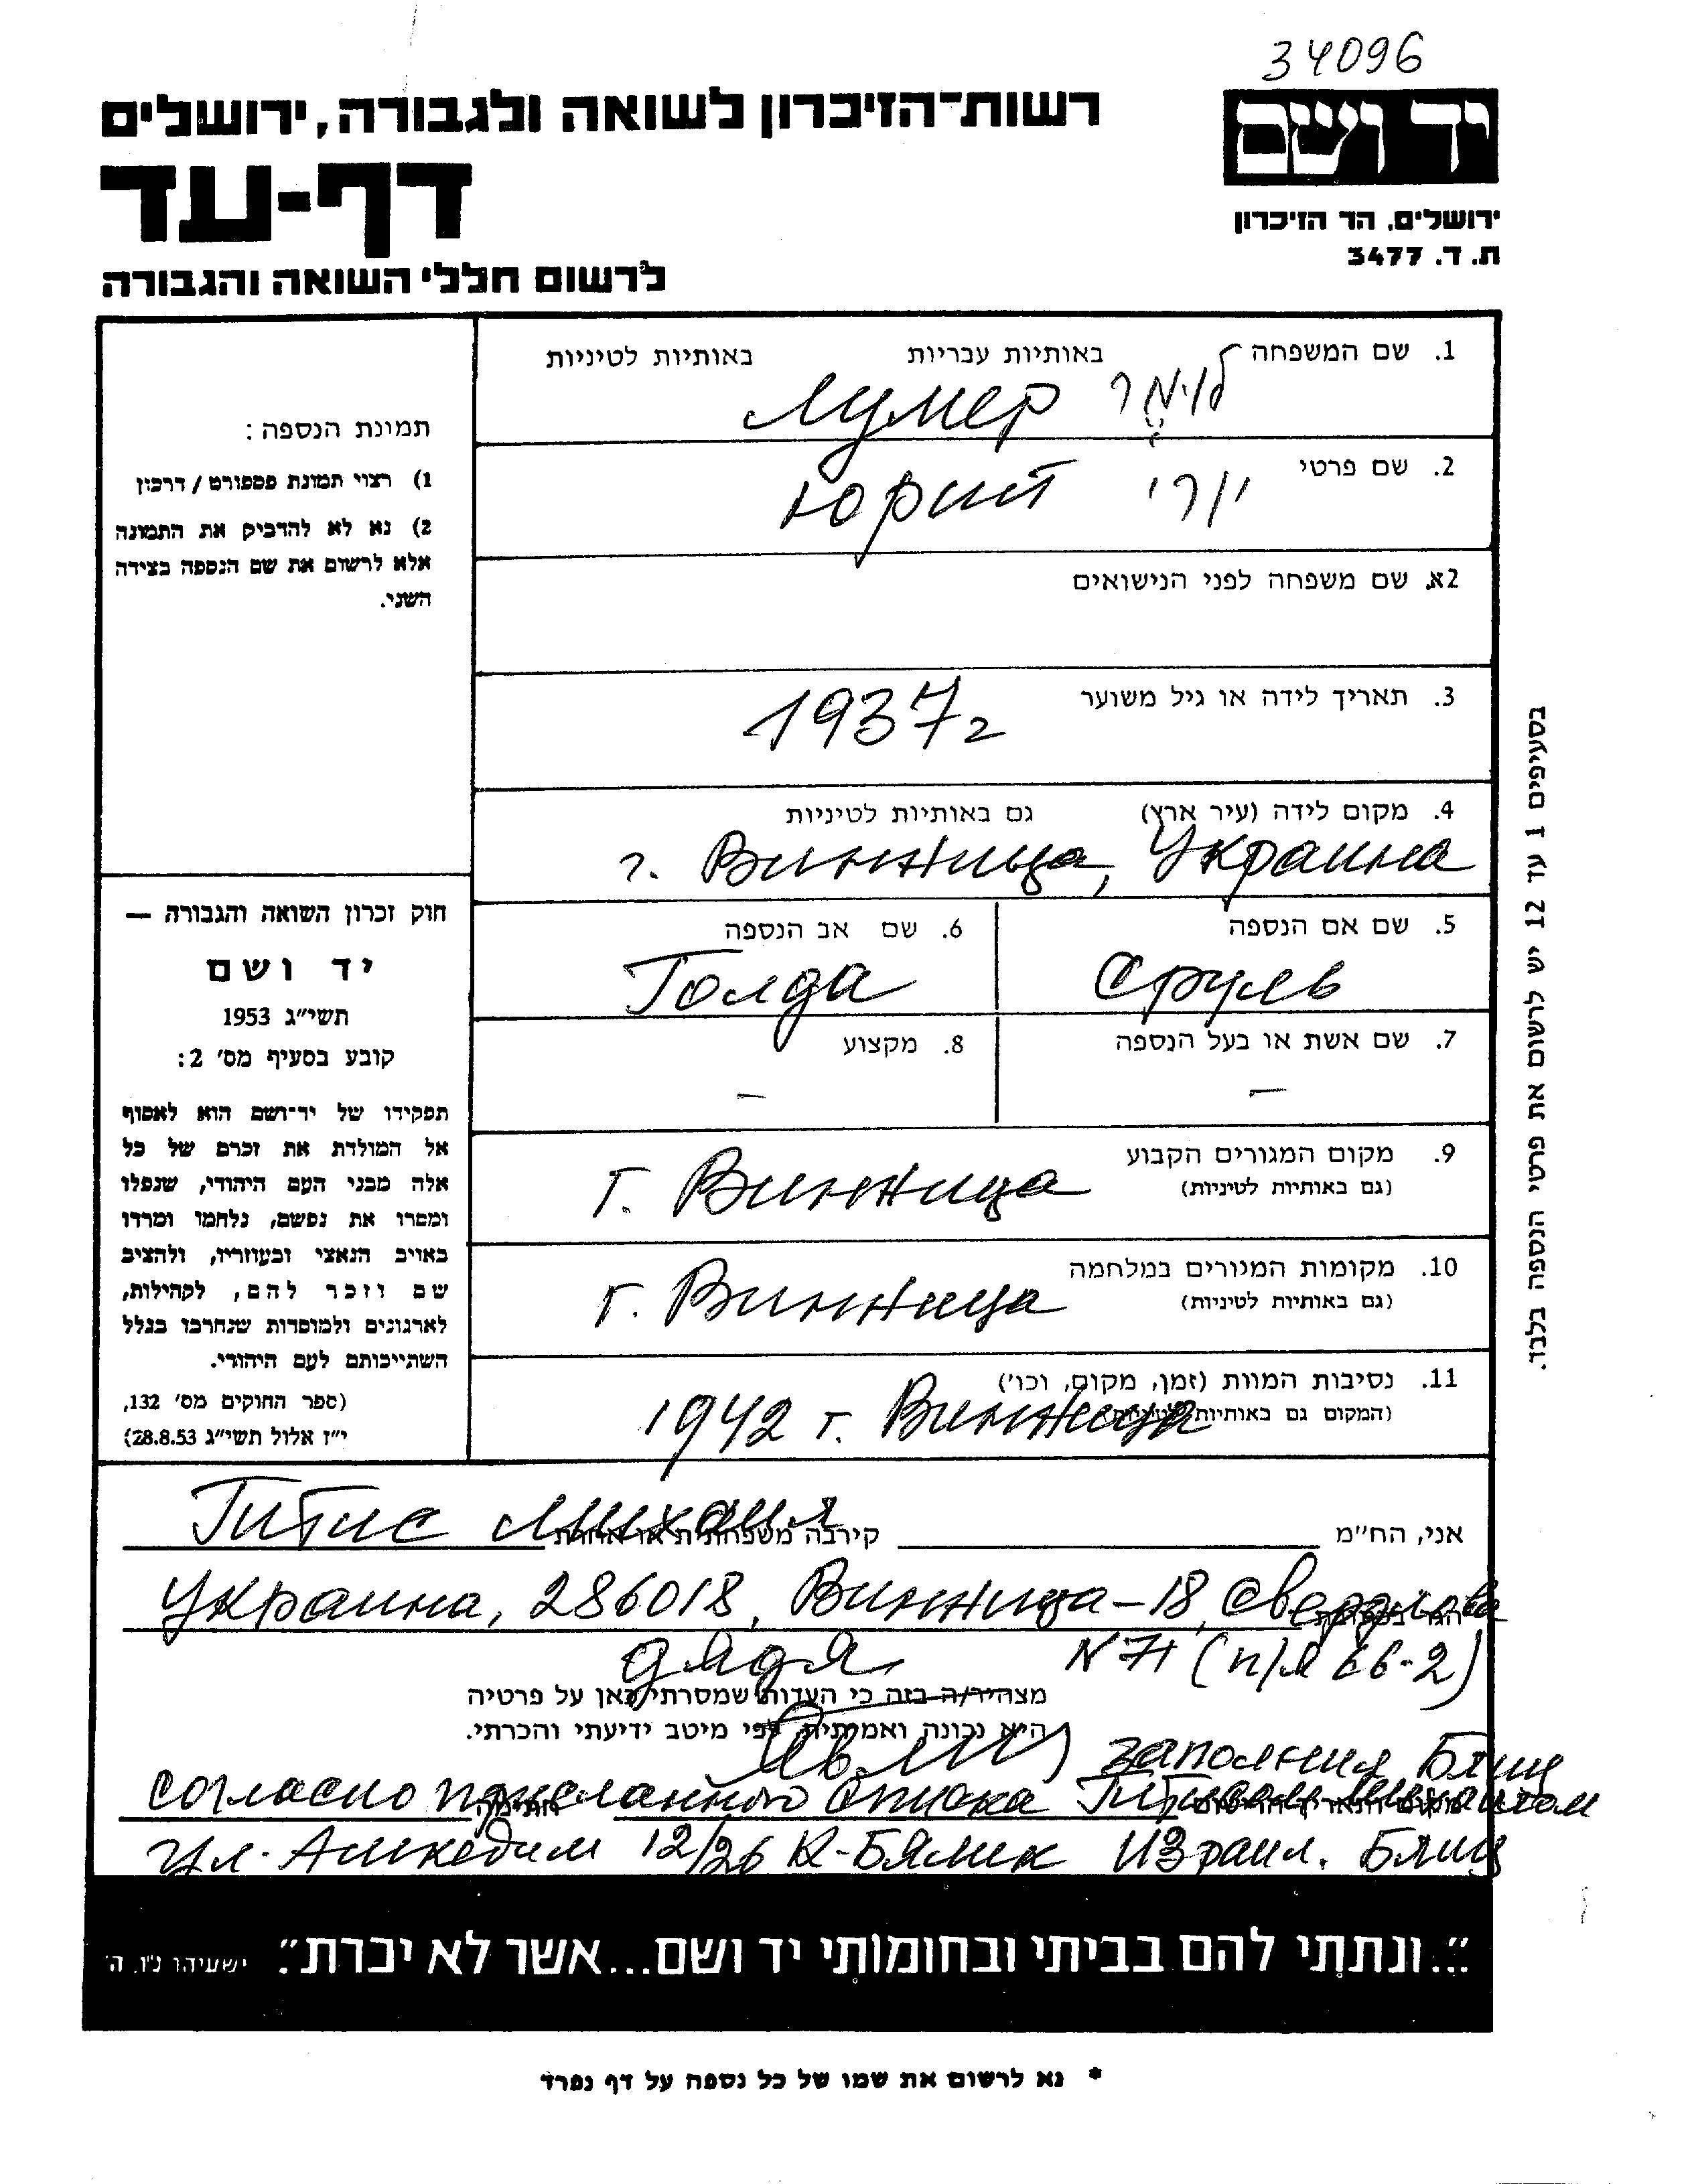 34096
יד ושם
ירושלים, הר הזיכרון
ת. ד. 3477
רשות-הזיכרון לשואה ולגבורה, ירושלים
דף-עד
לרשום חללי השואה והגבורה
1. שם המשפחה באותיות עבריות באותיות לטיניות
לומר Лумер
2. שם פרטי יורי Юрий
2א. שם משפחה לפני הנישואים
3. תאריך לידה או גיל משוער
1937 г
4. מקום לידה (עיר ארץ) גם באותיות לטיניות
г. Винница, Украина
5. שם אם הנספה
Сруль
6. שם אב הנספה
Голда
7. שם אשת או בעל הנספה
—
8. מקצוע
—
9. מקום המגורים הקבוע
(גם באותיות לטיניות)
г. Винница
10. מקומות המגורים במלחמה
(גם באותיות לטיניות)
г. Винница
11. נסיבות המוות (זמן, מקום, וכו')
(המקום גם באותיות לטיניות)
1942 г. Винница
תמונת הנספה:
1) רצוי תמונת פספורט / דרכון
2) נא לא להדביק את התמונה
אלא לרשום את שם הנספה בצידה
השני.
חוק זכרון השואה והגבורה —
יד ושם
תשי"ג 1953
קובע בסעיף מס' 2:
תפקידו של יד-ושם הוא לאסוף
אל המולדת את זכרם של כל
אלה מבני העם היהודי, שנפלו
ומסרו את נפשם, נלחמו ומרדו
באויב הנאצי ובעוזריו, ולהציב
שם וזכר להם, לקהילות,
לארגונים ולמוסדות שנחרבו בגלל
השתייכותם לעם היהודי.
(ספר החוקים מס' 132,
י"ז אלול תשי"ג 28.8.53)
בסעיפים 1 עד 12 יש לרשום את פרטי הנספה בלבד.
אני, הח"מ קירבה משפחתית או אחרת
Гитис Михаил
Украина, 286018, Винница-18, Свердлова
N 71 (п/я 66-2)
дядя
מצהיר/ה בזה כי העדות שמסרתי כאן על פרטיה
היא נכונה ואמיתית לפי מיטב ידיעתי והכרתי.
заполнил Блиц
согласно присланного списка Гитисом Михаилом
ул. Ашкедим 12/26 К-Бялик Израил. Блиц
"...ונתתי להם בביתי ובחומותי יד ושם... אשר לא יכרת". ישעיהו נ"ו, ה'
* נא לרשום את שמו של כל נספה על דף נפרד